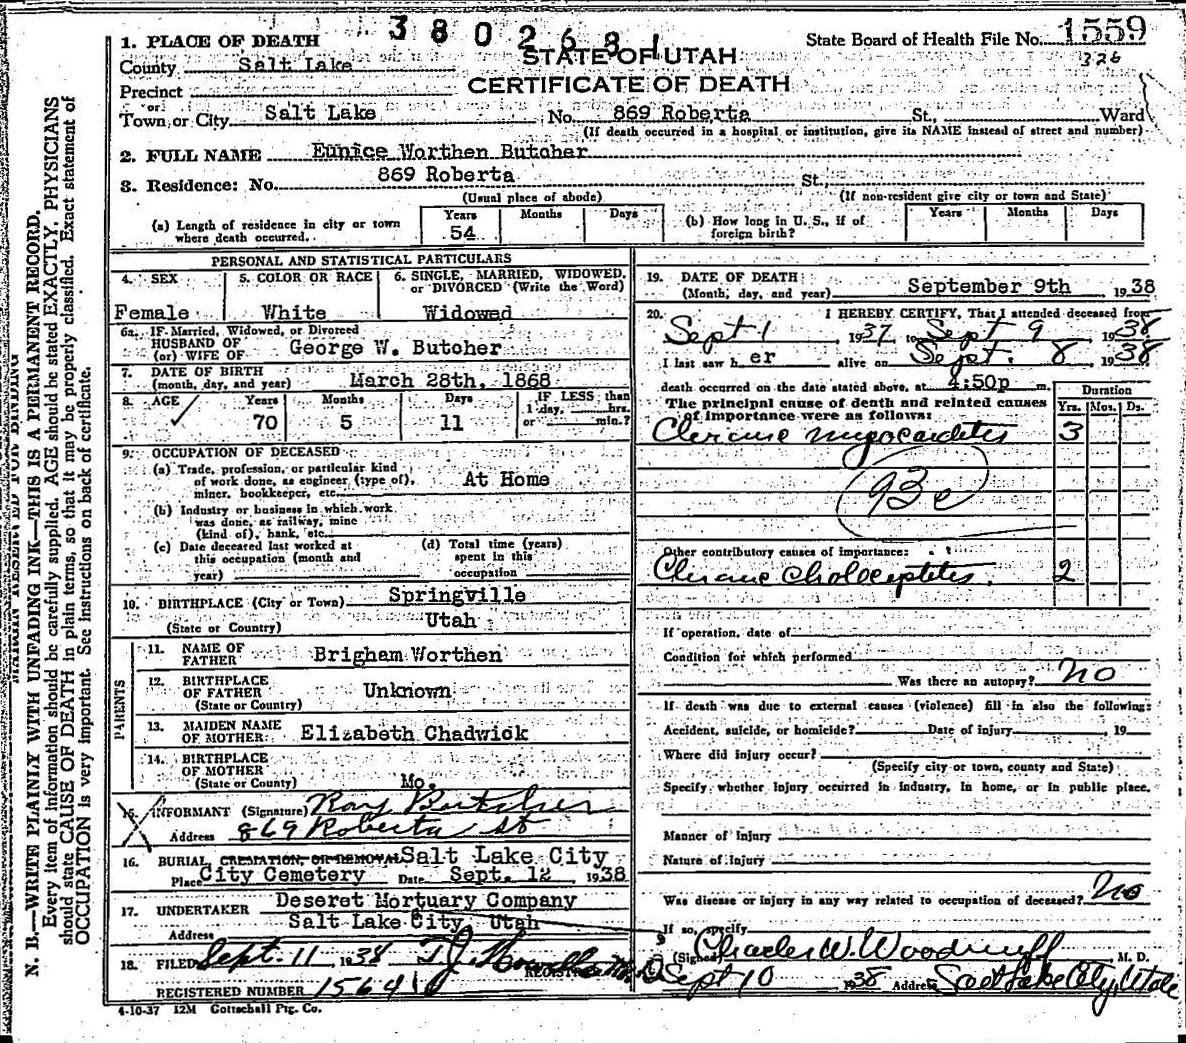 3802681
1. PLACE OF DEATH
STATE OF UTAH
State Board of Health File No. 1559
326
County Salt Lake
CERTIFICATE OF DEATH
Precinct
or
Town or City Salt Lake No. 869 Roberta St., Ward
(If death occurred in a hospital or institution, give its NAME instead of street and number)
2. FULL NAME Eunice Worthen Butcher
3. Residence: No. 869 Roberta St.
(Usual place of abode) (If non-resident give city or town and State)
(a) Length of residence in city or town where death occurred. Years 54 Months Days
(b) How long in U. S., if of foreign birth? Years Months Days
PERSONAL AND STATISTICAL PARTICULARS
4. SEX Female
5. COLOR OR RACE White
6. SINGLE, MARRIED, WIDOWED, or DIVORCED (Write the Word) Widowed
6a. IF Married, Widowed, or Divorced
HUSBAND OF
(or) WIFE OF George W. Butcher
7. DATE OF BIRTH
(month, day, and year) March 28th, 1868
8. AGE ✓ Years 70 Months 5 Days 11 IF LESS than
1 day, hrs.
or min.?
9. OCCUPATION OF DECEASED
(a) Trade, profession, or particular kind
of work done, as engineer (type of), At Home
miner, bookkeeper, etc.
(b) Industry or business in which work
was done, as railway, mine
(kind of), bank, etc.
(c) Date deceased last worked at
this occupation (month and
year)
(d) Total time (years)
spent in this
occupation
10. BIRTHPLACE (City or Town) Springville
(State or Country) Utah
PARENTS
11. NAME OF
FATHER Brigham Worthen
12. BIRTHPLACE
OF FATHER Unknown
(State or Country)
13. MAIDEN NAME
OF MOTHER: Elizabeth Chadwick
14. BIRTHPLACE
OF MOTHER
(State or County) Mo.
15. INFORMANT (Signature) Ray Butcher
Address 869 Roberta St
16. BURIAL, CREMATION, OR REMOVAL Salt Lake City
Place City Cemetery Date Sept. 12 1938
17. UNDERTAKER Deseret Mortuary Company
Address Salt Lake City, Utah
18. FILED Sept. 11, 1938 T.J.
REGISTRAR
REGISTERED NUMBER 1564
4-10-37 12M Gottschall Ptg. Co.
19. DATE OF DEATH:
(Month, day, and year) September 9th 1938
20. I HEREBY CERTIFY, That I attended deceased from
Sept 1, 1937, to Sept 9 1938
I last saw h er alive on Sept. 8, 1938
death occurred on the date stated above, at 4:50p m.
The principal cause of death and related causes
of importance were as follows:
Duration
Yrs. Mos. Ds.
Chronic myocarditis 3
93c
Other contributory causes of importance:
Chronic Cholecystitis. 2
If operation, date of
Condition for which performed
Was there an autopsy? no
If death was due to external causes (violence) fill in also the following:
Accident, suicide, or homicide? Date of injury 19
Where did injury occur?
(Specify city or town, county and State)
Specify whether injury occurred in industry, in home, or in public place.
Manner of Injury
Nature of Injury
Was disease or injury in any way related to occupation of deceased? no
If so, specify
(Signed) Charles W. Woodruff, M. D.
Sept 10 1938 Address Salt Lake City, Utah
N. B.—WRITE PLAINLY WITH UNFADING INK—THIS IS A PERMANENT RECORD.
Every item of information should be carefully supplied. AGE should be stated EXACTLY. PHYSICIANS
should state CAUSE OF DEATH in plain terms, so that it may be properly classified. Exact statement of
OCCUPATION is very important. See instructions on back of certificate.